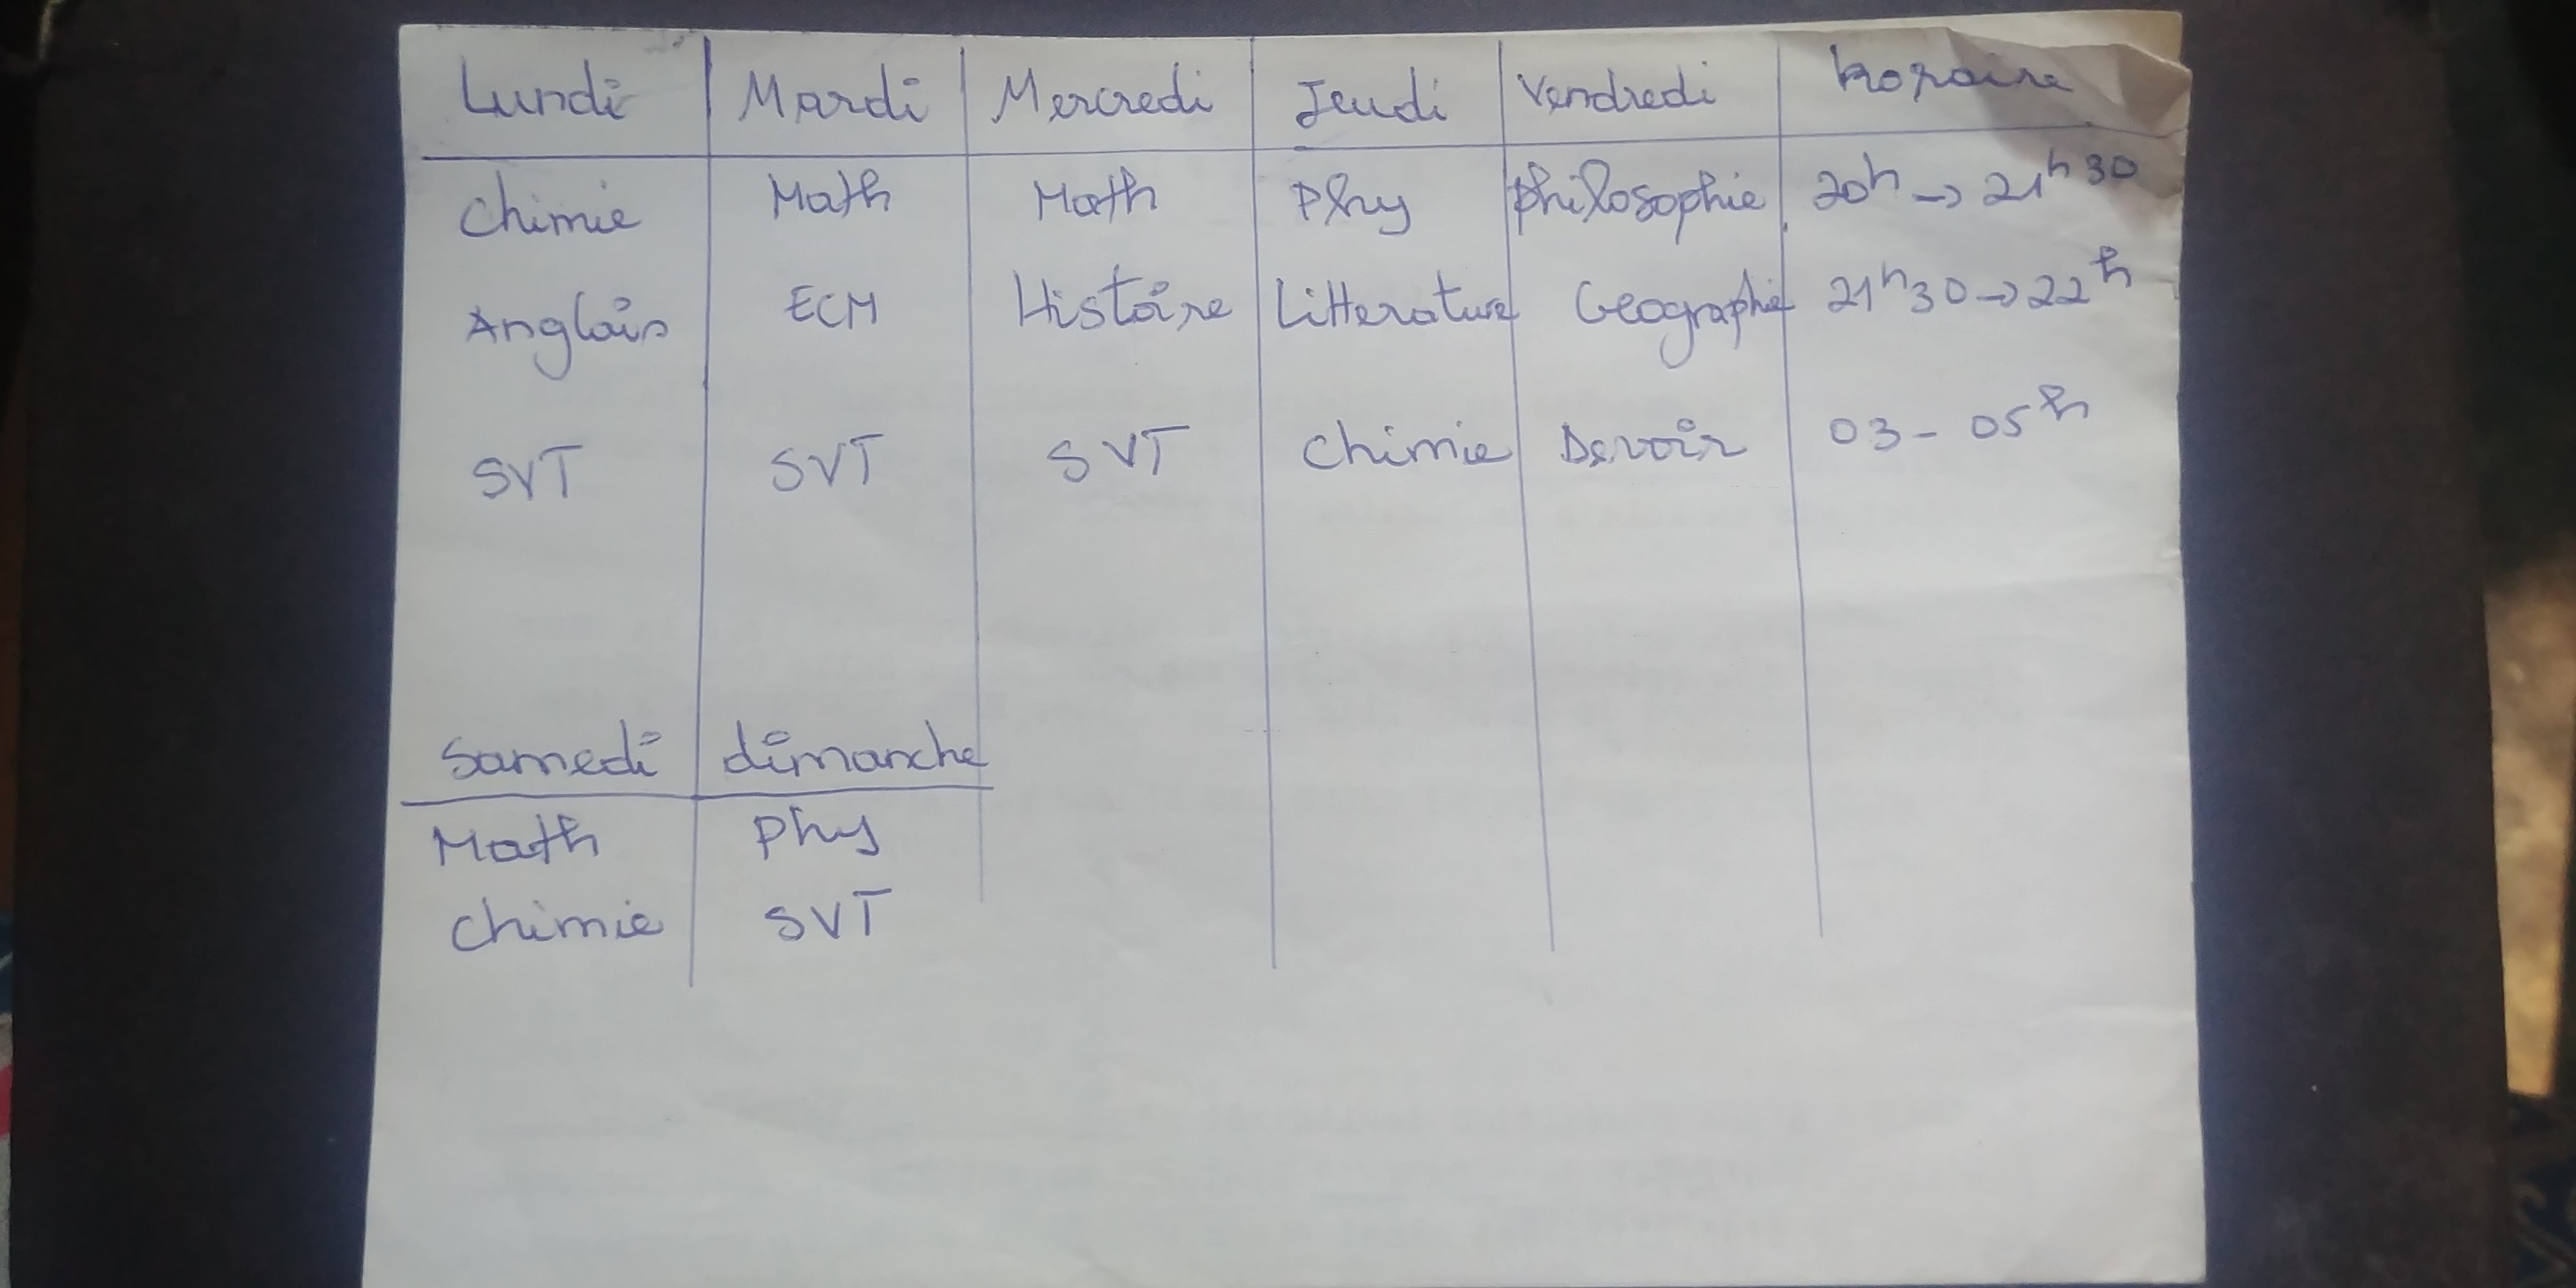 Lundi Mardi Mercredi Jeudi Vendredi horaire
Chimie Math Math Phy Philosophie 20h → 21h30
Anglais ECM Histoire Litterature Geographie 21h30 → 22h
SVT SVT SVT Chimie Devoir 03 - 05h
Samedi dimanche
Math Phy
Chimie SVT